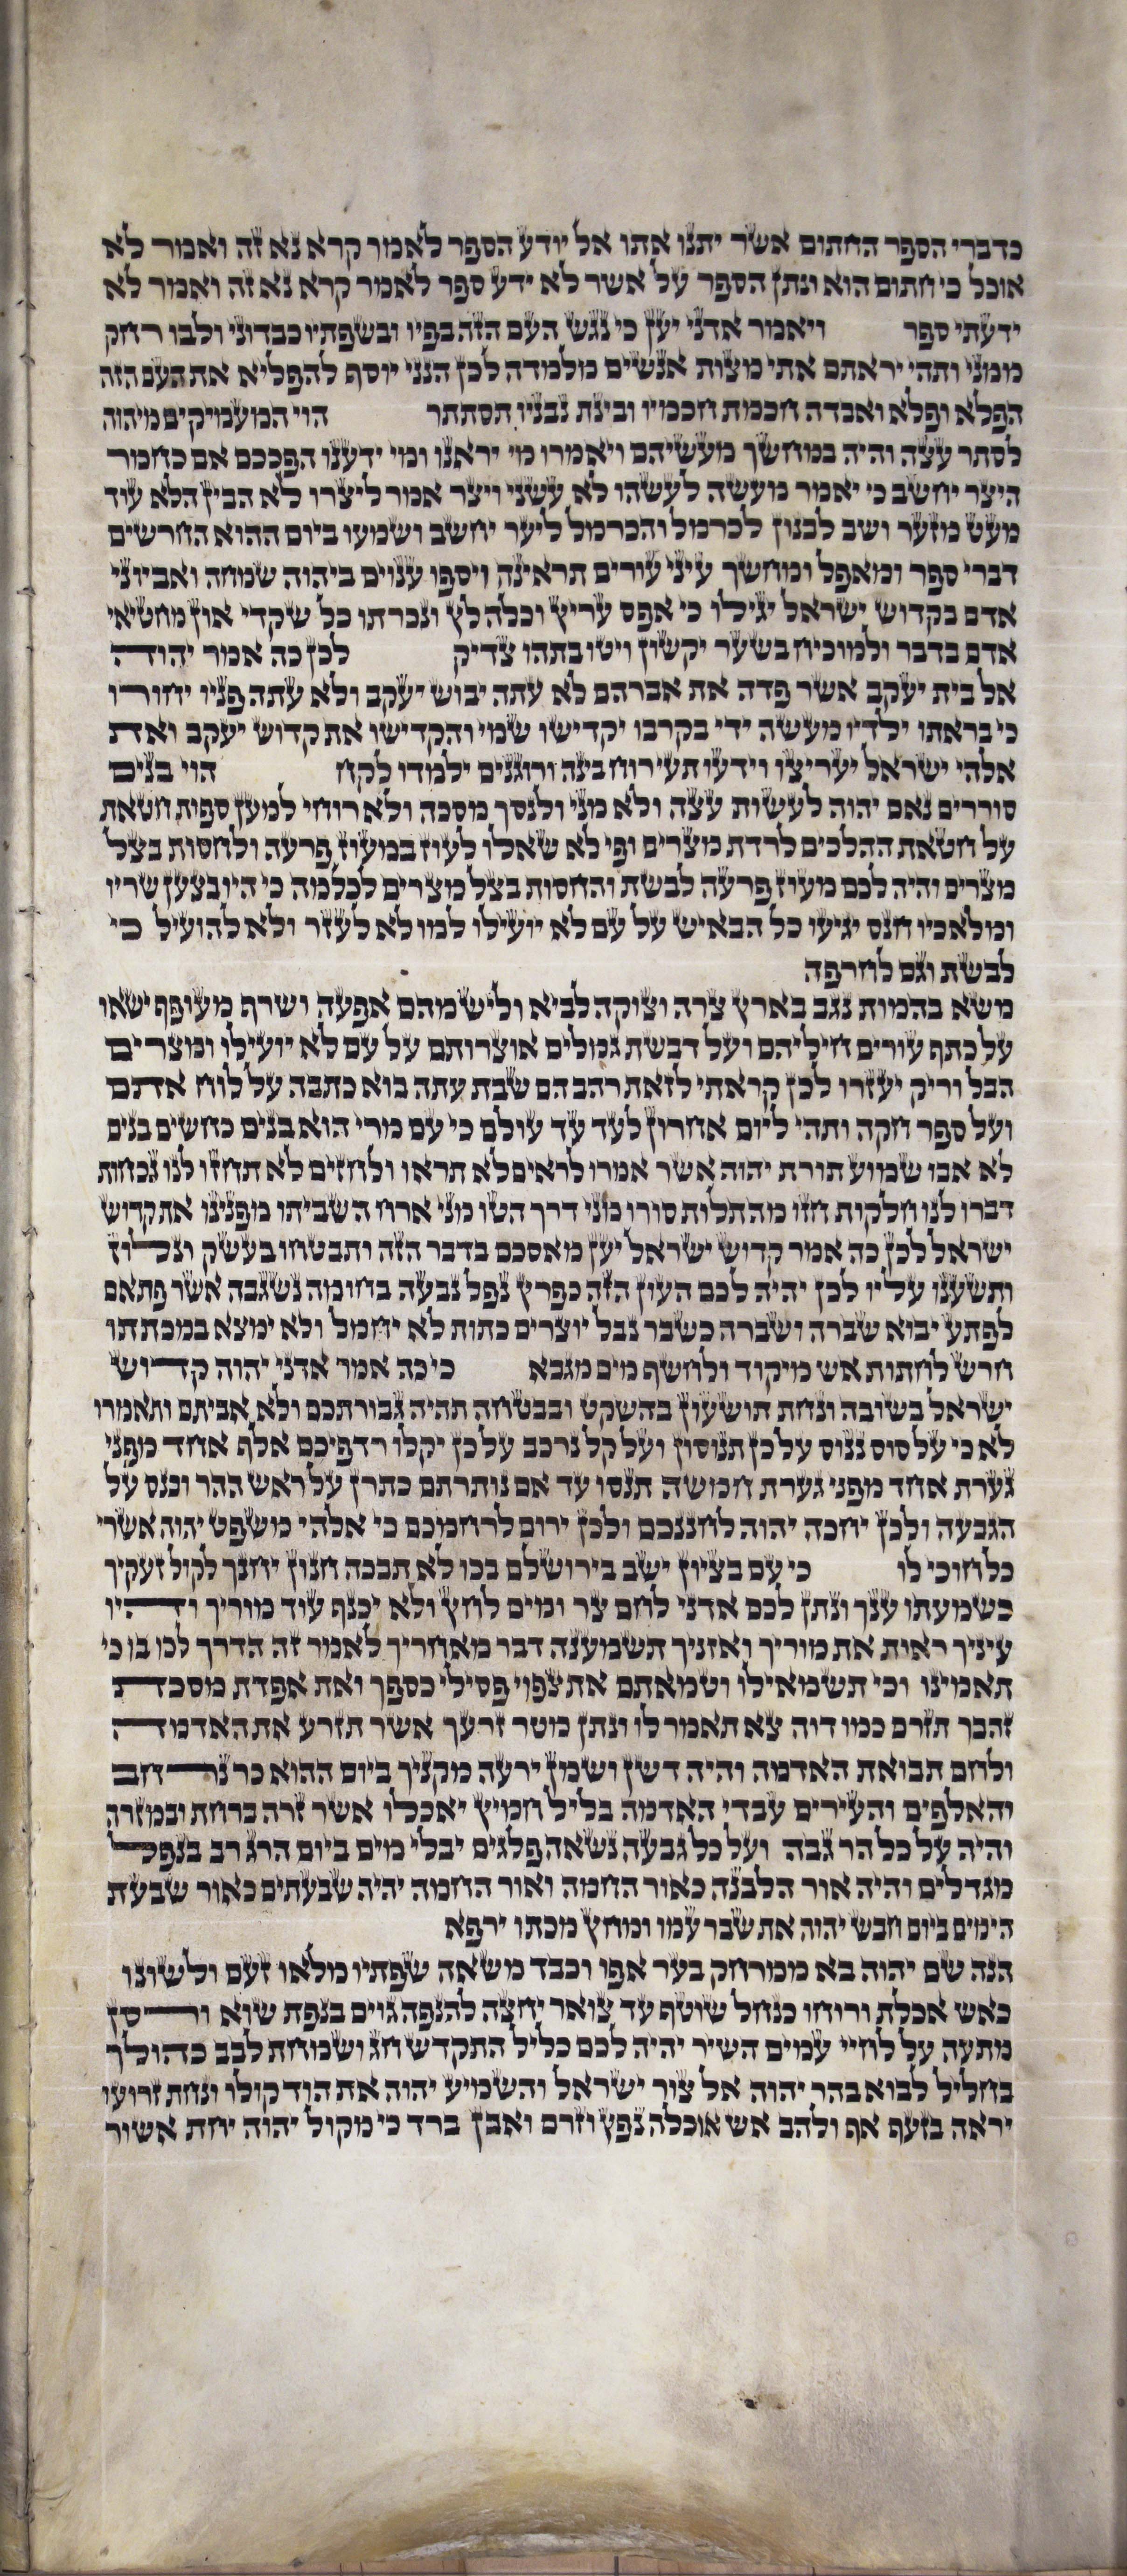 כדברי הספר החתום אשר יתנו אתו אל יודע הספר לאמר קרא נא זה ואמר לא
אוכל כי חתום הוא ונתן הספר על אשר לא ידע ספר לאמר קרא נא זה ואמר לא
ידעתי ספר ויאמר אדני יען כי נגש העם הזה בפיו ובשפתיו כבדוני ולבו רחק
ממני ותהי יראתם אתי מצות אנשים מלמדה לכן הנני יוסף להפליא את העם הזה
הפלא ופלא ואבדה חכמת חכמיו ובינת נבניו תסתתר הוי המעמיקים מיהוה
לסתר עצה והיה במחשך מעשיהם ויאמרו מי יראנו ומי ידענו הפככם אם כחמר
היצר יחשב כי יאמר מעשה לעשהו לא עשני ויצר אמר ליצרו לא הבין הלא עוד
מעט מזער ושב לבנון לכרמל והכרמל ליער יחשב ושמעו ביום ההוא החרשים
דברי ספר ומאפל ומחשך עיני עורים תראינה ויספו ענוים ביהוה שמחה ואביוני
אדם בקדוש ישראל יגילו כי אפס עריץ וכלה לץ ונכרתו כל שקדי און מחטיאי
אדם בדבר ולמוכיח בשער יקשון ויטו בתהו צדיק לכן כה אמר יהוה
אל בית יעקב אשר פדה את אברהם לא עתה יבוש יעקב ולא עתה פניו יחורו
כי בראתו ילדיו מעשה ידי בקרבו יקדישו שמי והקדישו את קדוש יעקב ואת
אלהי ישראל יעריצו וידעו תעי רוח בינה ורוגנים ילמדו לקח הוי בנים
סוררים נאם יהוה לעשות עצה ולא מני ולנסך מסכה ולא רוחי למען ספות חטאת
על חטאת ההלכים לרדת מצרים ופי לא שאלו לעוז במעוז פרעה ולחסות בצל
מצרים והיה לכם מעוז פרעה לבשת והחסות בצל מצרים לכלמה כי היו בצען שריו
ומלאכיו חנס יגיעו כל הבאיש על עם לא יועילו למו לא לעזר ולא להועיל כי
לבשת וגם לחרפה
משא בהמות נגב בארץ צרה וצוקה לביא וליש מהם אפעה ושרף מעופף ישאו
על כתף עורים חיליהם ועל דבשת גמלים אוצרותם על עם לא יועילו ומצרים
הבל וריק יעזרו לכן קראתי לזאת רהב הם שבת עתה בוא כתבה על לוח אתם
ועל ספר חקה ותהי ליום אחרון לעד עד עולם כי עם מרי הוא בנים כחשים בנים
לא אבו שמוע תורת יהוה אשר אמרו לראים לא תראו ולחזים לא תחזו לנו נכחות
דברו לנו חלקות חזו מהתלות סורו מני דרך הטו מני ארח השביתו מפנינו את קדוש
ישראל לכן כה אמר קדוש ישראל יען מאסכם בדבר הזה ותבטחו בעשק ונלוז
ותשענו עליו לכן יהיה לכם העון הזה כפרץ נפל נבעה בחומה נשגבה אשר פתאם
לפתע יבוא שברה ושברה כשבר נבל יוצרים כתות לא יחמל ולא ימצא במכתתו
חרש לחתות אש מיקוד ולחשף מים מגבא כי כה אמר אדני יהוה קדוש
ישראל בשובה ונחת תושעון בהשקט ובבטחה תהיה גבורתכם ולא אביתם ותאמרו
לא כי על סוס ננוס על כן תנוסון ועל קל נרכב על כן יקלו רדפיכם אלף אחד מפני
גערת אחד מפני גערת חמשה תנסו עד אם נותרתם כתרן על ראש ההר וכנס על
הגבעה ולכן יחכה יהוה לחננכם ולכן ירום לרחמכם כי אלהי משפט יהוה אשרי
כל חוכי לו כי עם בציון ישב בירושלם בכו לא תבכה חנון יחנך לקול זעקיך
כשמעתו ענך ונתן לכם אדני לחם צר ומים לחץ ולא יכנף עוד מוריך והיו
עיניך ראות את מוריך ואזניך תשמענה דבר מאחריך לאמר זה הדרך לכו בו כי
תאמינו וכי תשמאילו וטמאתם את צפוי פסילי כספך ואת אפדת מסכת
זהבך תזרם כמו דוה צא תאמר לו ונתן מטר זרעך אשר תזרע את האדמה
ולחם תבואת האדמה והיה דשן ושמן ירעה מקניך ביום ההוא כר נרחב
והאלפים והעירים עבדי האדמה בליל חמיץ יאכלו אשר זרה ברחת ובמזרה
והיה על כל הר גבה ועל כל גבעה נשאה פלגים יבלי מים ביום הרג רב בנפל
מגדלים והיה אור הלבנה כאור החמה ואור החמה יהיה שבעתים כאור שבעת
הימים ביום חבש יהוה את שבר עמו ומחץ מכתו ירפא
הנה שם יהוה בא ממרחק בער אפו וכבד משאה שפתיו מלאו זעם ולשונו
כאש אכלת ורוחו כנחל שוטף עד צואר יחצה להנפה גוים בנפת שוא ורסן
מתעה על לחיי עמים השיר יהיה לכם כליל התקדש חג ושמחת לבב כהולך
בחליל לבוא בהר יהוה אל צור ישראל והשמיע יהוה את הוד קולו ונחת זרועו
יראה בזעף אף ולהב אש אוכלה נפץ וזרם ואבן ברד כי מקול יהוה יחת אשור